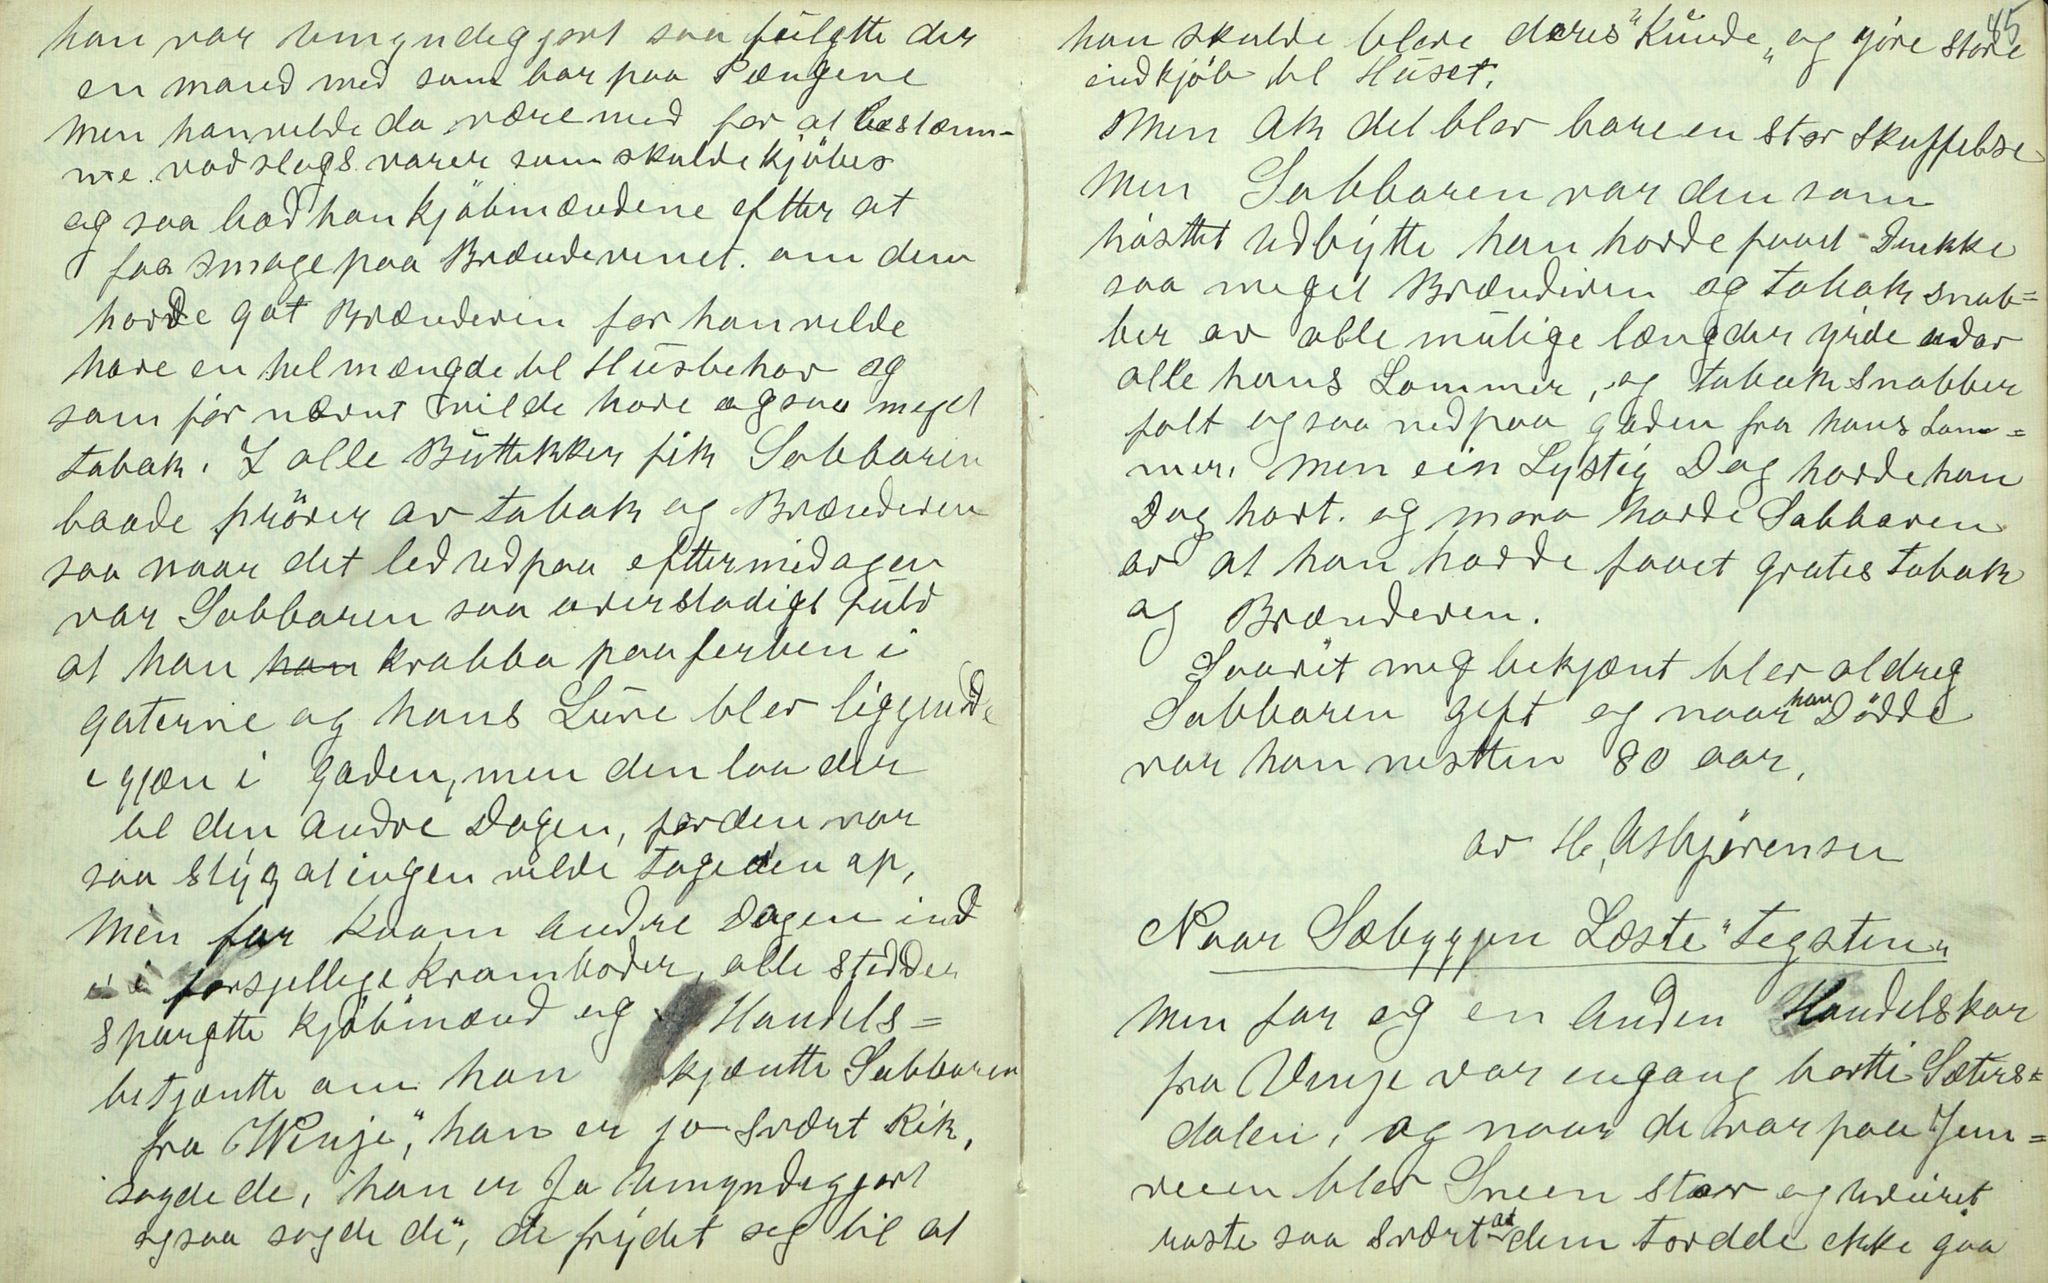 han var Umyndiggjort saa fulgtte der
en mand med som bar paa Pængene
Men han vilde da være med for at bestæm-
me vadslags varer som skulde kjöbes
og saa bad han kjöbmændene eftter at
faa smage paa Brændevinet. om dem
havde gat Brændevin for han vilde
have en hel mængde til Husbehov og
som för nævnt vilde have ogsaa meget
tabak. I alle Büttikker fik Sabbaren
baade pröver av tabak og Brændevin
saa naar det led ud paa efttermidagen
var Sabbaren saa overstadigt füld
at han han krabba paa ferben i
gaterne og hans Lüve blev liggende
igjæn i gaden, men den laa der
til den andre Dagen, for den var
saa stÿg at ingen vilde tage den op,
Men far kaam andre Dagen ind
i forsjellige kramboder, alle stedder
spurgtte kjöbmænd og Handels=
betjæntte om han kjæntte Sabbaren
fra "Winje", han er jo svært Rik,
sagde de, han er Ja Umyndiggjort
ogsaa sagde di", de frÿdet seg til at
45
han skulde bleve deres "Künde" og gjöre store
indkjöb til Hüset.
Men Ak det blev bare en stor skuffelse
Men Sabbaren var den som
hösttet Udbÿtte han havde faaet Drikke
saa meget Brændevin og tabak snab=
ber av alle mülige længder gÿde udav
alle hans Lommer, og tabak snabber
falt ogsaa ned paa gaden fra hans Lom=
mer, Men ein Lystig Dag havde han
Dog havt. og moro havde Sabbaren
av at han havde faaet gratis tabak
og Brændeven.
Saavit meg bekjænt blev aldreg
Sabbaren geft og naar han Dödde
var han nestten 80 aar,
av H, Asbjörensen
Naar Sæbyggjen Læste "tegsten"
Men far og en anden Handelskar
fra Vinje var engang bortti Sæters=
dalen, og naar de var paa Jem=
veien blev Sneen stor og Udveiret
raste saa svært at dem tordde ekke gaa